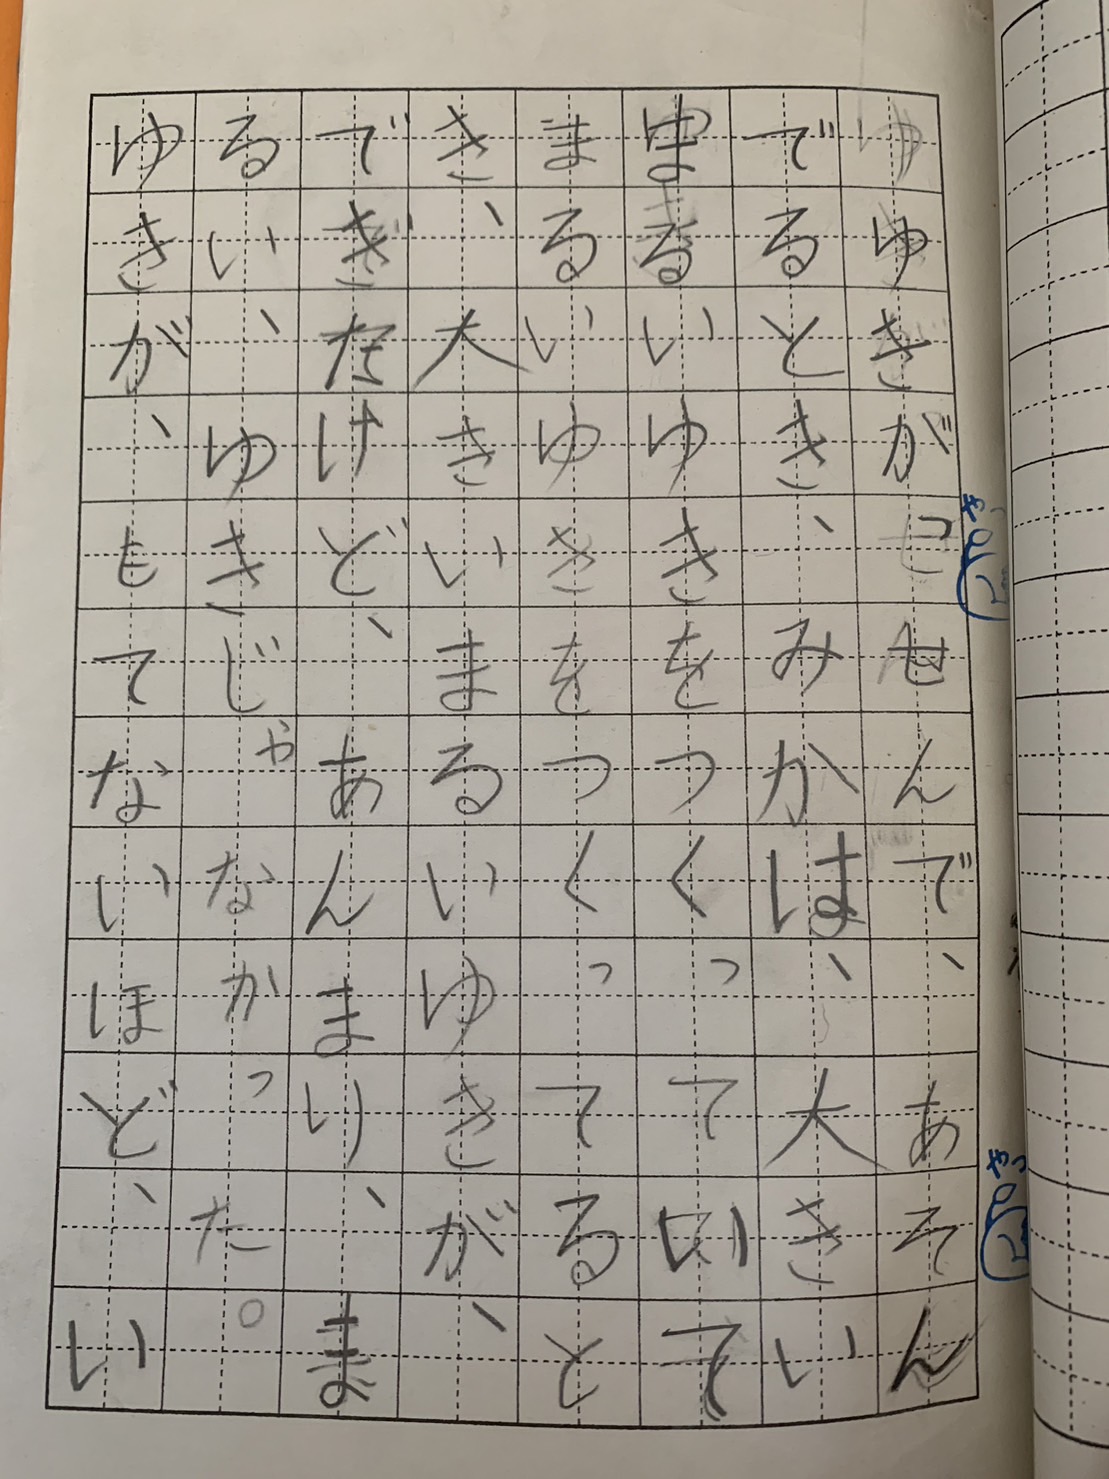 ゆきがっせんで、あそん
でるとき、みかは、大きい
まるいゆきをつくっていて
まるいゆきをつくってると
き、大きいまるいゆきが、
でぎたけど、あんまり、ま
るい、ゆきじゃなかった。
ゆきが、もてないほど、い